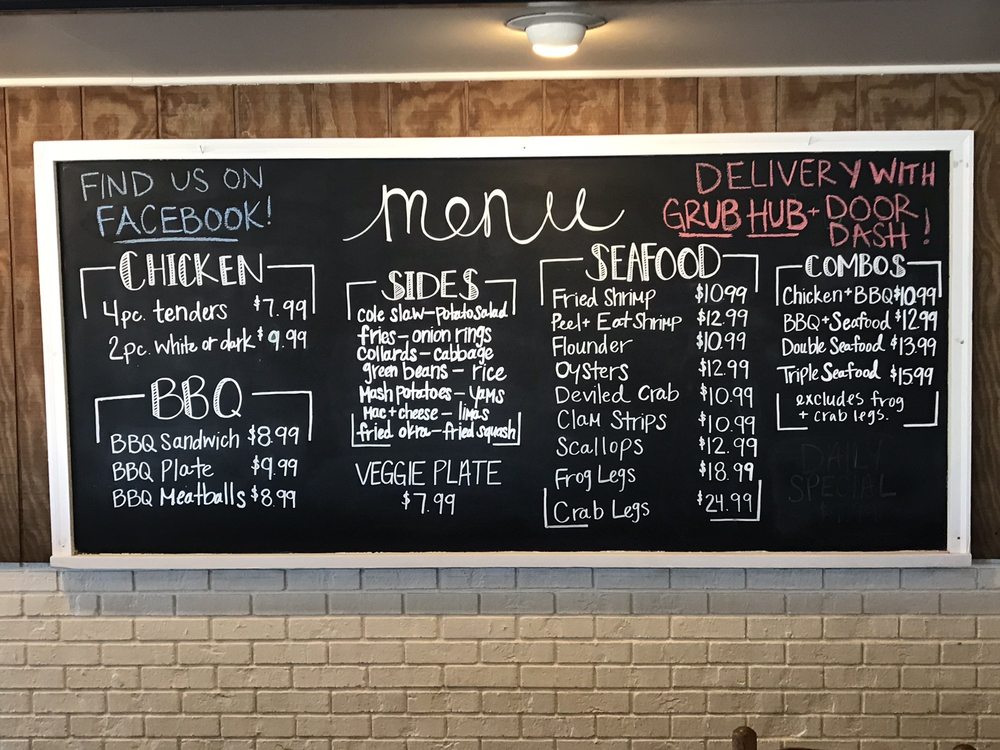 FIND US ON
FACEBOOK!
menu
DELIVERY WITH
GRUB HUB + DOOR
DASH!
CHICKEN
4pc. tenders $7.99
2pc. white or dark $9.99
BBQ
BBQ Sandwich $8.99
BBQ Plate $9.99
BBQ Meatballs $8.99
SIDES
Cole Slaw - Potato Salad
fries - onion rings
Collards - cabbage
green beans - rice
Mash Potatoes - Yams
Mac + cheese - limas
fried okra - fried squash
VEGGIE PLATE
$7.99
SEAFOOD
Fried Shrimp $10.99
Peel + Eat Shrimp $12.99
Flounder $10.99
Oysters $12.99
Deviled Crab $10.99
Clam Strips $10.99
Scallops $12.99
Frog Legs $18.99
Crab Legs $24.99
COMBOS
Chicken + BBQ $10.99
BBQ + Seafood $12.99
Double Seafood $13.99
Triple Seafood $15.99
excludes frog
+ crab legs.
DAILY
SPECIAL